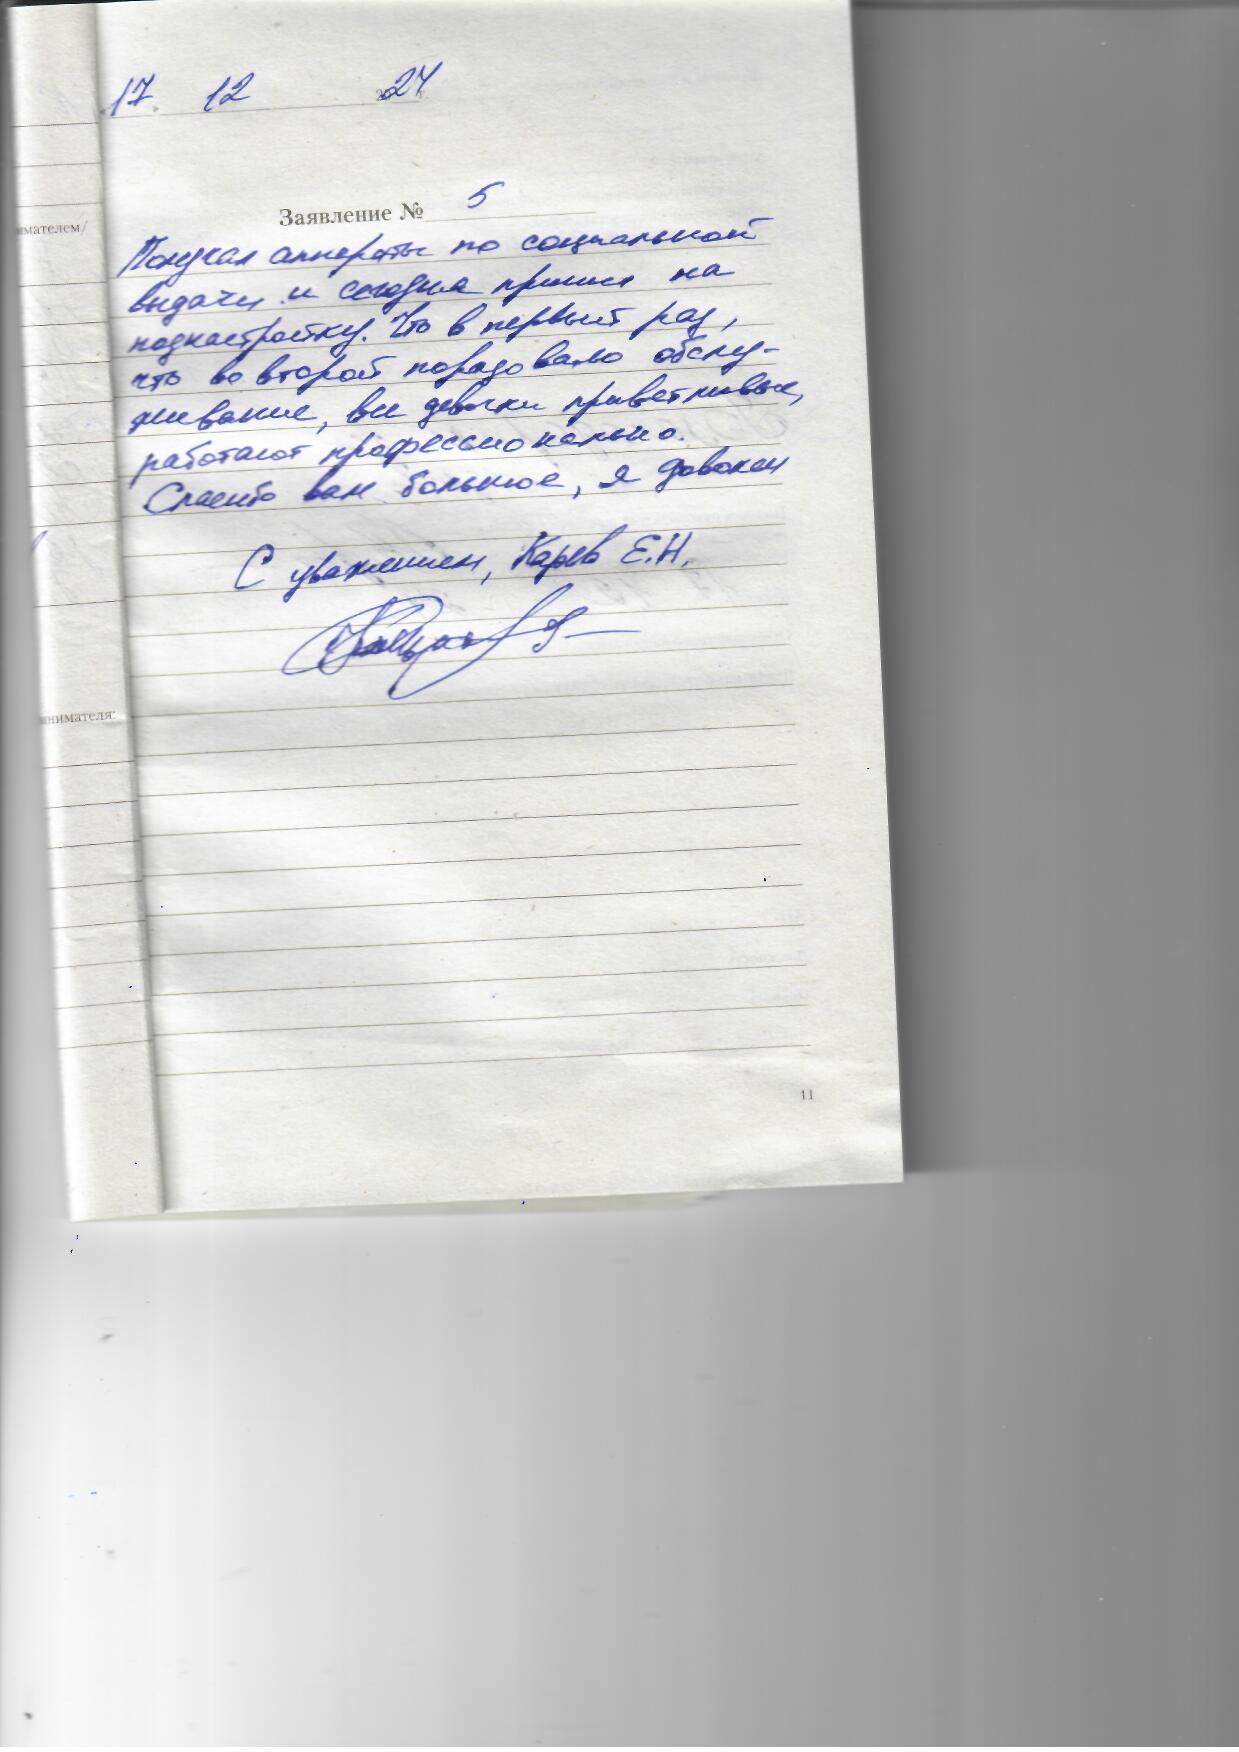 17 12 2024 г.
Заявление № 5
имателем/
Получал аппараты по социальной
выдачи и сегодня пришел на
поднастройку. Что в первый раз,
что во второй порадовало обслу-
живание, все девочки приветливые,
работают профессионально.
Спасибо вам большое, я доволен
С уважением, Карев Е.Н.
нимателя:
11